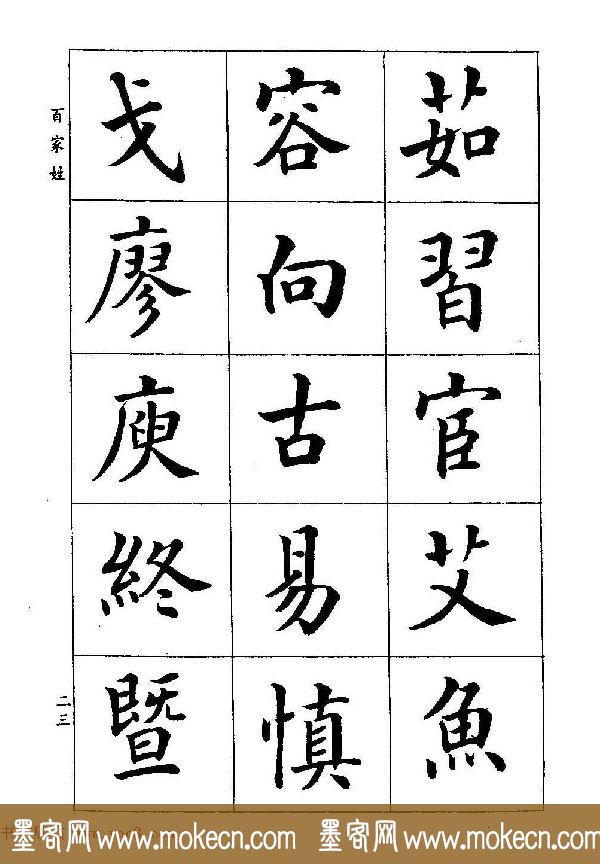 茹習宦艾魚
容向古易慎
戈廖庾終暨
百家姓
二三
墨客网 www.mokecn.com 墨客网 www.mokecn.com